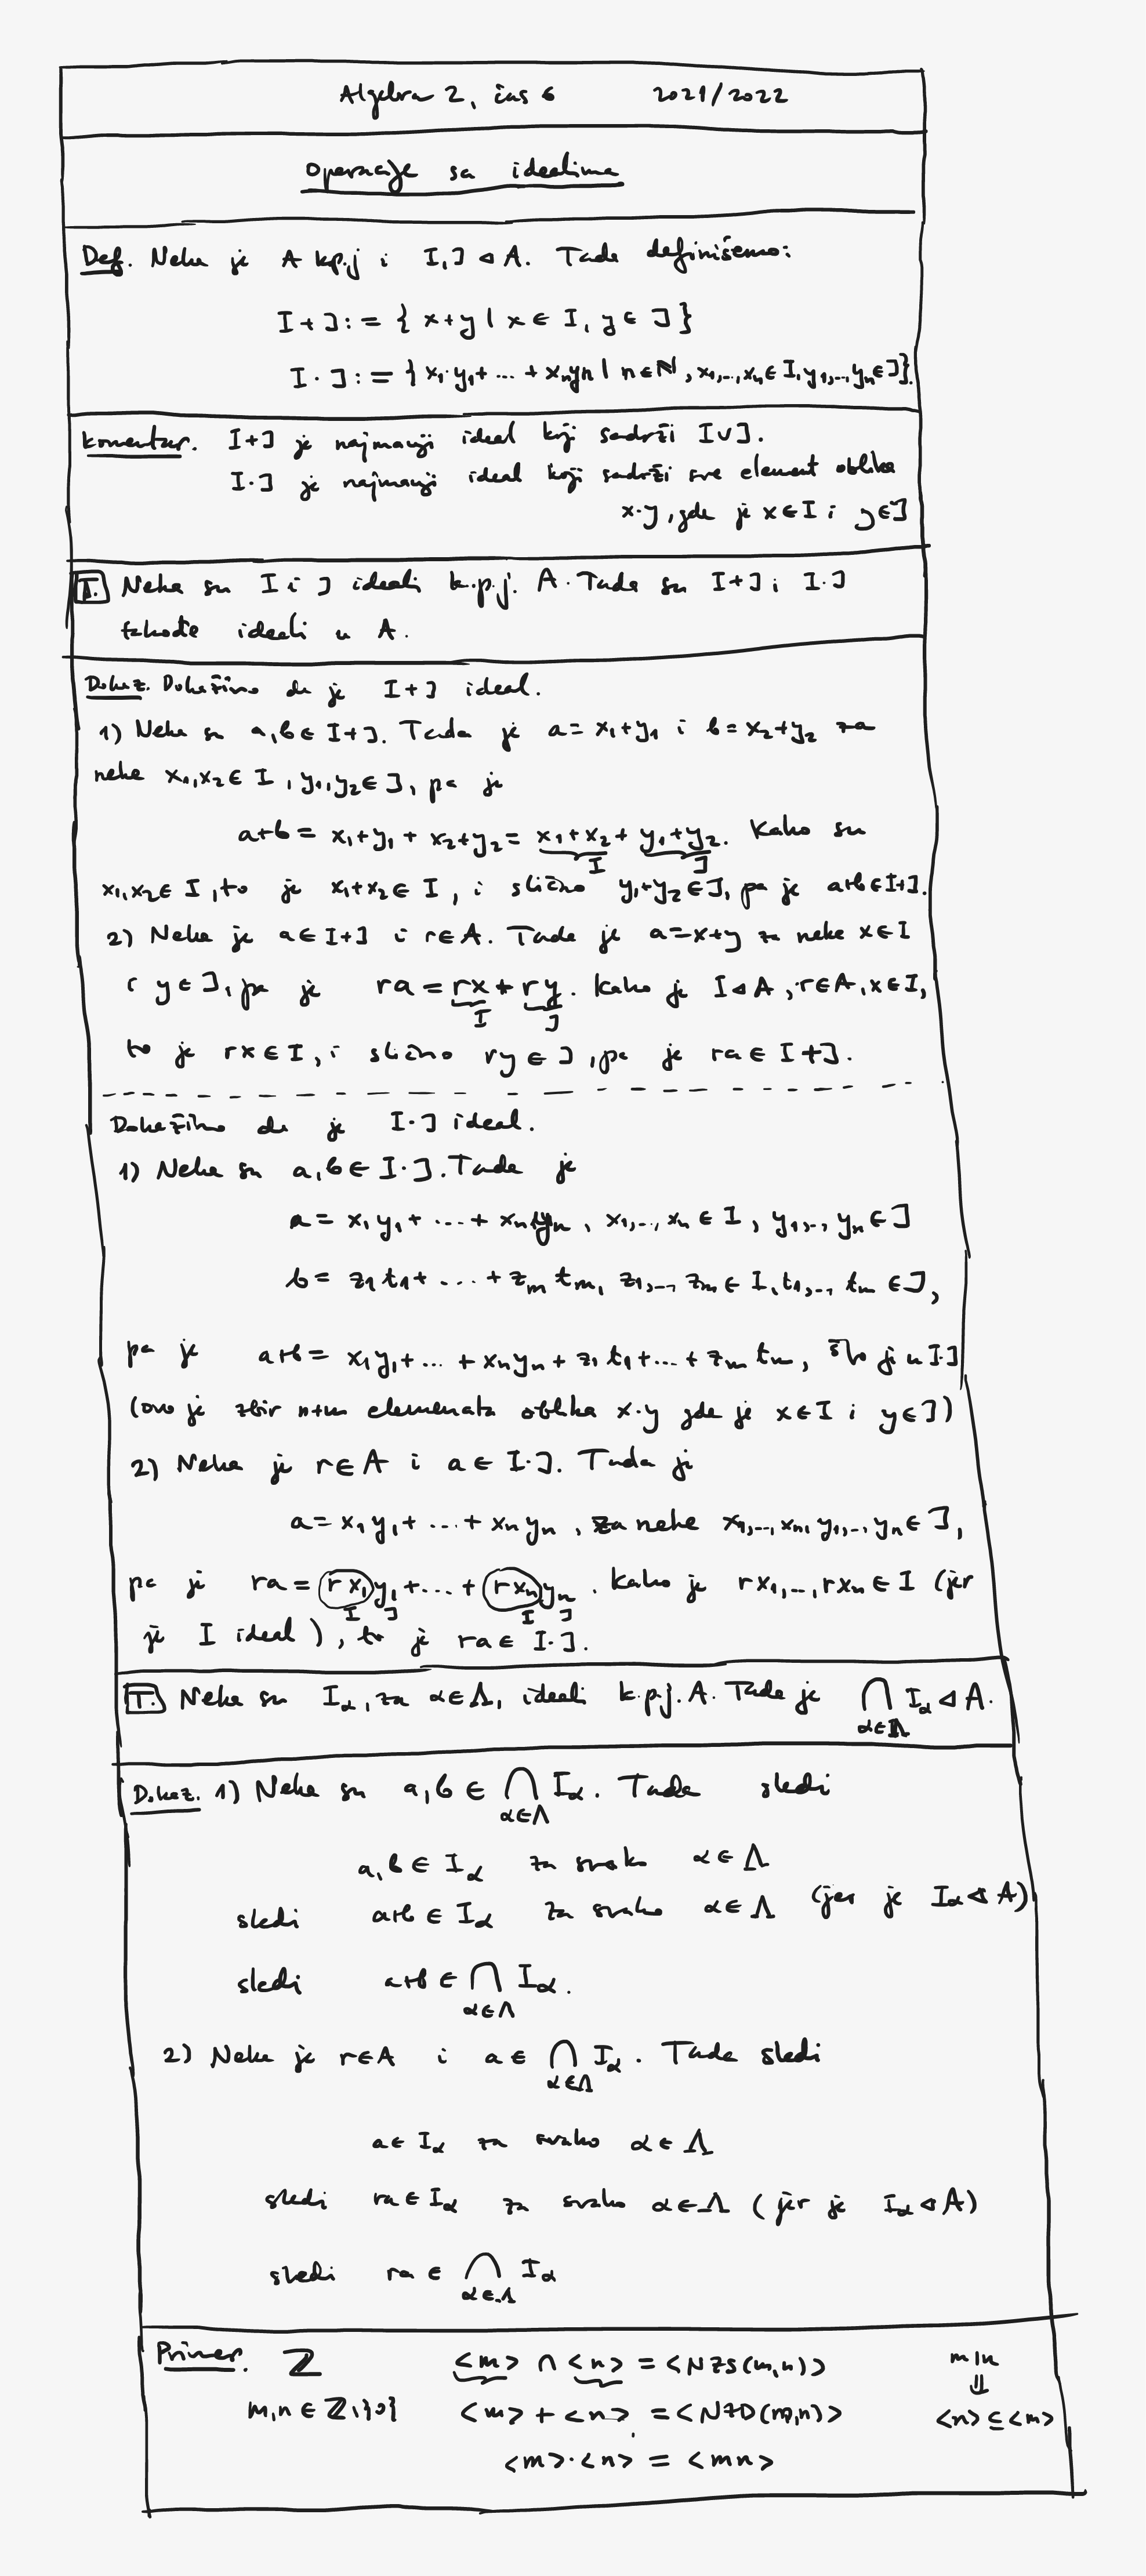 Algebra 2, čas 6 2021/2022
Operacije sa idealima
Def. Neka je A k.p.j i I, J ◁ A. Tada definišemo:
I + J := { x+y | x ∈ I, y ∈ J }
I · J := { x₁·y₁ + ... + xₙyₙ | n ∈ ℕ, x₁,...,xₙ ∈ I, y₁,...,yₙ ∈ J }.
Komentar. I+J je najmanji ideal koji sadrži I∪J.
I·J je najmanji ideal koji sadrži sve element oblika
x·y, gde je x∈I i y∈J
T. Neka su I i J ideali k.p.j. A. Tada su I+J i I·J
takođe ideali u A.
Dokaz. Dokažimo da je I+J ideal.
1) Neka su a,b ∈ I+J. Tada je a = x₁+y₁ i b = x₂+y₂ za
neke x₁,x₂ ∈ I, y₁,y₂ ∈ J, pa je
a+b = x₁+y₁ + x₂+y₂ = x₁+x₂ + y₁+y₂. Kako su
I J
x₁,x₂ ∈ I, to je x₁+x₂ ∈ I, i slično y₁+y₂ ∈ J, pa je a+b ∈ I+J.
2) Neka je a ∈ I+J i r ∈ A. Tada je a = x+y za neke x ∈ I
i y ∈ J, pa je ra = rx + ry. Kako je I ◁ A, r ∈ A, x ∈ I,
I J
to je rx ∈ I, i slično ry ∈ J, pa je ra ∈ I+J.
Dokažimo da je I·J ideal.
1) Neka su a,b ∈ I·J. Tada je
a = x₁y₁ + ... + xₙyₙ, x₁,..., xₙ ∈ I, y₁,..., yₙ ∈ J
b = z₁t₁ + ... + zₘtₘ, z₁,..., zₘ ∈ I, t₁,..., tₘ ∈ J,
pa je a+b = x₁y₁ + ... + xₙyₙ + z₁t₁ + ... + zₘtₘ, što je u I·J
(ovo je zbir n+m elemenata oblika x·y gde je x∈I i y∈J)
2) Neka je r ∈ A i a ∈ I·J. Tada je
a = x₁y₁ + ... + xₙyₙ, za neke x₁,...,xₙ, y₁,..., yₙ ∈ J,
pa je ra = rx₁y₁ + ... + rxₙyₙ. Kako je rx₁,...,rxₙ ∈ I (jer
I J I J
je I ideal), to je ra ∈ I·J.
T. Neka su I_α, za α∈Λ, ideali k.p.j. A. Tada je ⋂ I_α ◁ A.
α∈Λ
Dokaz. 1) Neka su a,b ∈ ⋂ I_α. Tada sledi
α∈Λ
a,b ∈ I_α za svako α ∈ Λ
sledi a+b ∈ I_α za svako α ∈ Λ (jer je I_α ◁ A)
sledi a+b ∈ ⋂ I_α.
α∈Λ
2) Neka je r∈A i a ∈ ⋂ I_α. Tada sledi
α∈Λ
a ∈ I_α za svako α ∈ Λ
sledi ra ∈ I_α za svako α ∈ Λ (jer je I_α ◁ A)
sledi ra ∈ ⋂ I_α
α∈Λ
Primer. ℤ <m> ∩ <n> = <NZS(m,n)> m|n
⇓
m,n ∈ ℤ\{0} <m> + <n> = <NZD(m,n)> <n> ⊆ <m>
<m>·<n> = <mn>